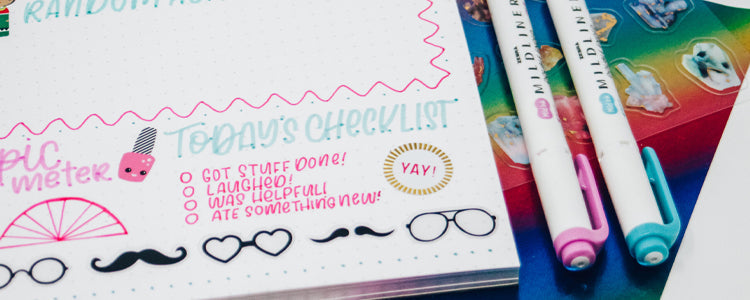 RANDOM
TODAY'S CHECKLIST
pic
meter
GOT STUFF DONE!
LAUGHED!
WAS HELPFUL!
ATE SOMETHING NEW!
YAY!
ZEBRA MILDLINER
ZEBRA MILDLINER